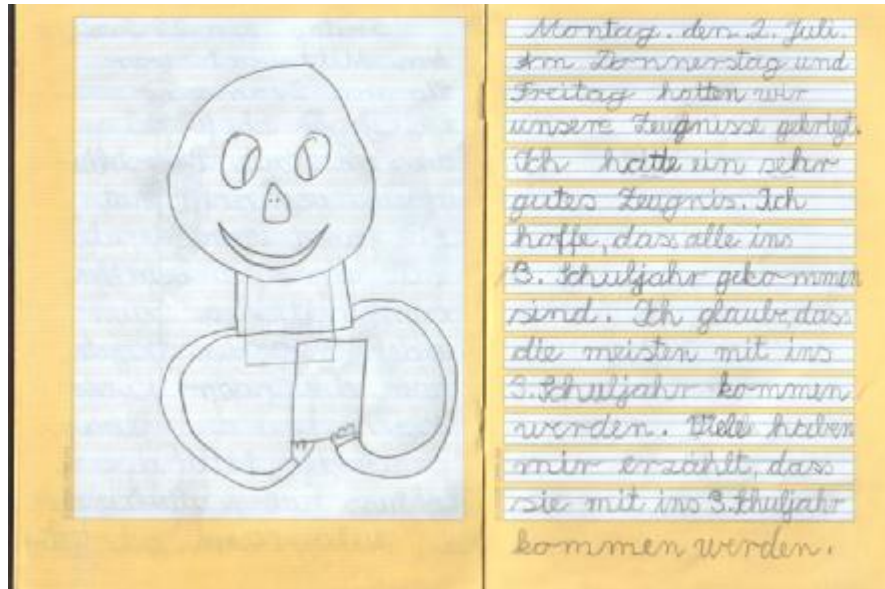 Montag. den 2. Juli.
Am Donnerstag und
Freitag hatten wir
unsere Zeugnisse gekriegt.
Ich hatte ein sehr
gutes Zeugnis. Ich
hoffe, dass alle ins
3. Schuljahr gekommen
sind. Ich glaube, dass
die meisten mit ins
3. Schuljahr kommen
werden. Viele haben
mir erzählt, dass
sie mit ins 3. Schuljahr
kommen werden.